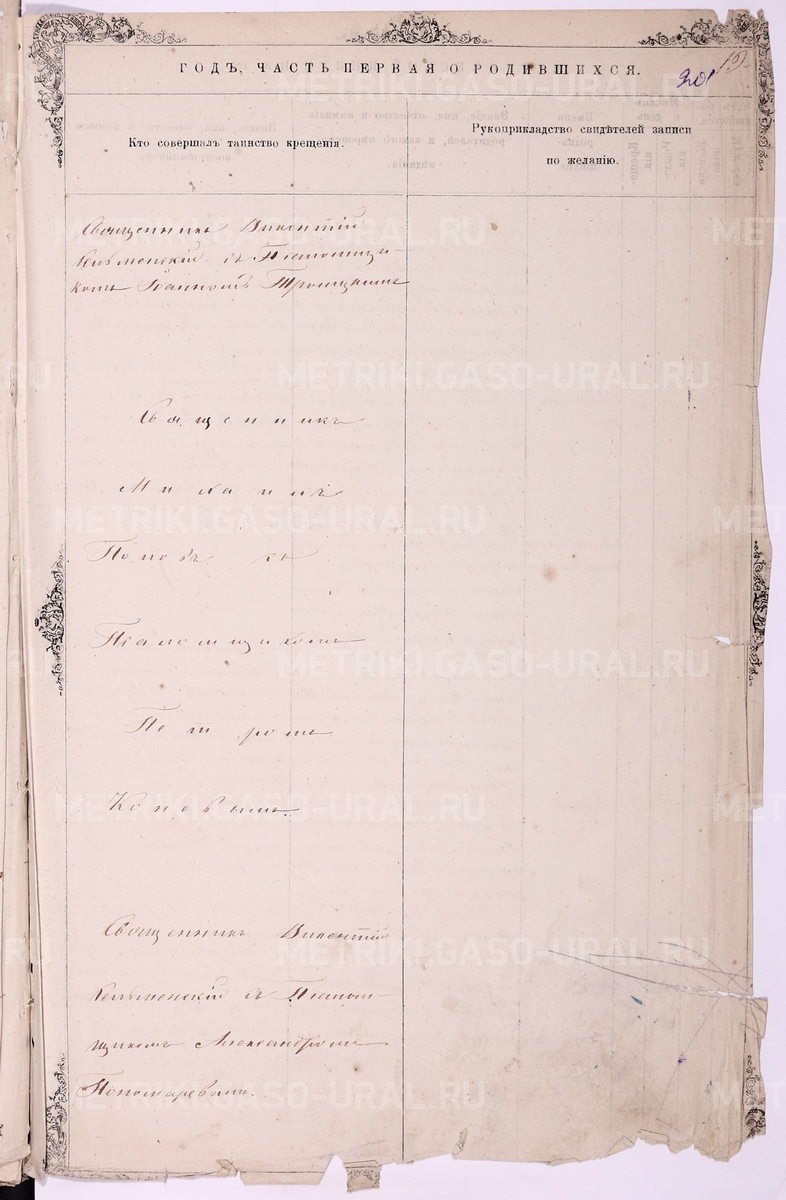 ГОДЪ, ЧАСТЬ ПЕРВАЯ О РОДИВШИХСЯ.
201
Кто совершалъ таинство крещенія.
Рукоприкладство свидѣтелей записи
по желанію.
Священникъ Викентій
съ Псаломщи-
комъ Іоанномъ Троицкимъ
Священникъ
Михаилъ
Поповъ съ
Псаломщикомъ
Петромъ
Коневымъ.
Священникъ Викентій
съ Псалом-
щикомъ Александромъ
Пономаревымъ.
METRIKI.GASO-URAL.RU